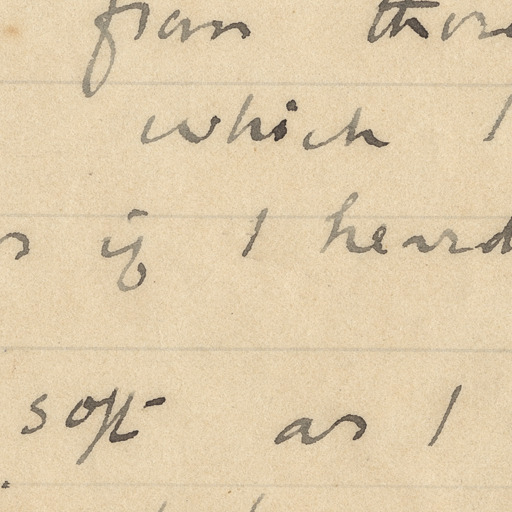 from
which I
if I heard
soft as I